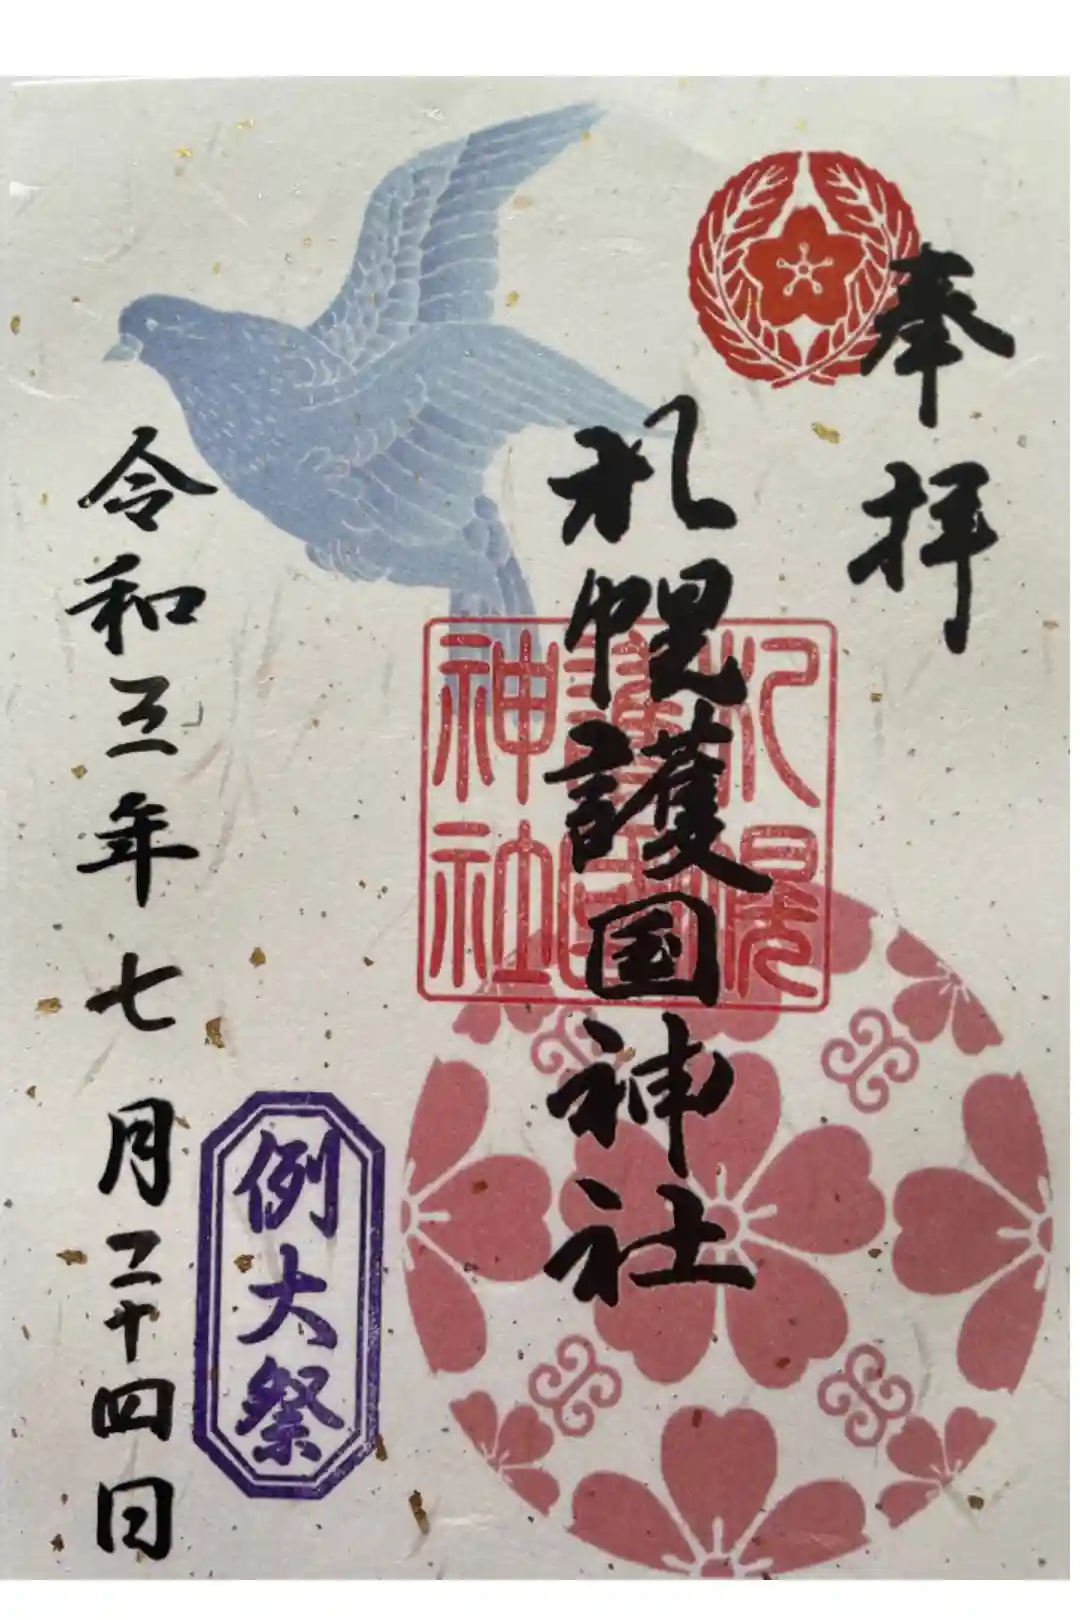 奉拝
札幌護国神社
札幌
護国
神社
例大祭
令和三年七月二十四日